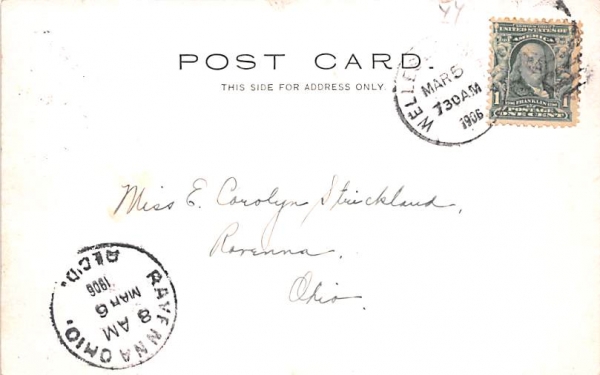 POST CARD.
THIS SIDE FOR ADDRESS ONLY.
MAR 5
730AM
1906
UNITED STATES OF
AMERICA
1 FRANKLIN 1
POSTAGE
ONE CENT
Miss E. Carolyn Strickland,
Ravenna,
Ohio.
RAVENNA OHIO.
REC'D.
1906
MAR 6
8 AM